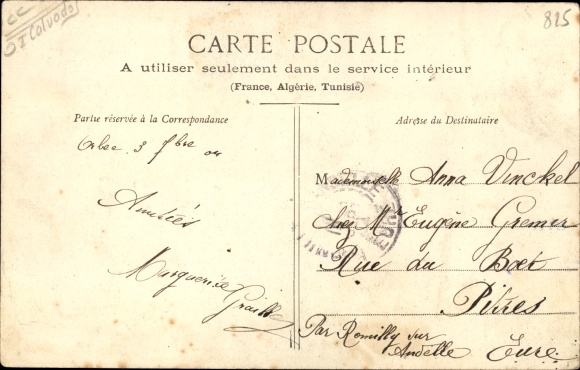 825
Calvados
CARTE POSTALE
A utiliser seulement dans le service intérieur
(France, Algérie, Tunisie)
Partie réservée à la Correspondance
Orbec 3 bre 04
Amitiés
Marguerite
Adresse du Destinataire
Mademoiselle Anna Vinckel
chez Mr Eugène Gremer
Rue du Boët
Pitres
Par Romilly sur
Andelle Eure